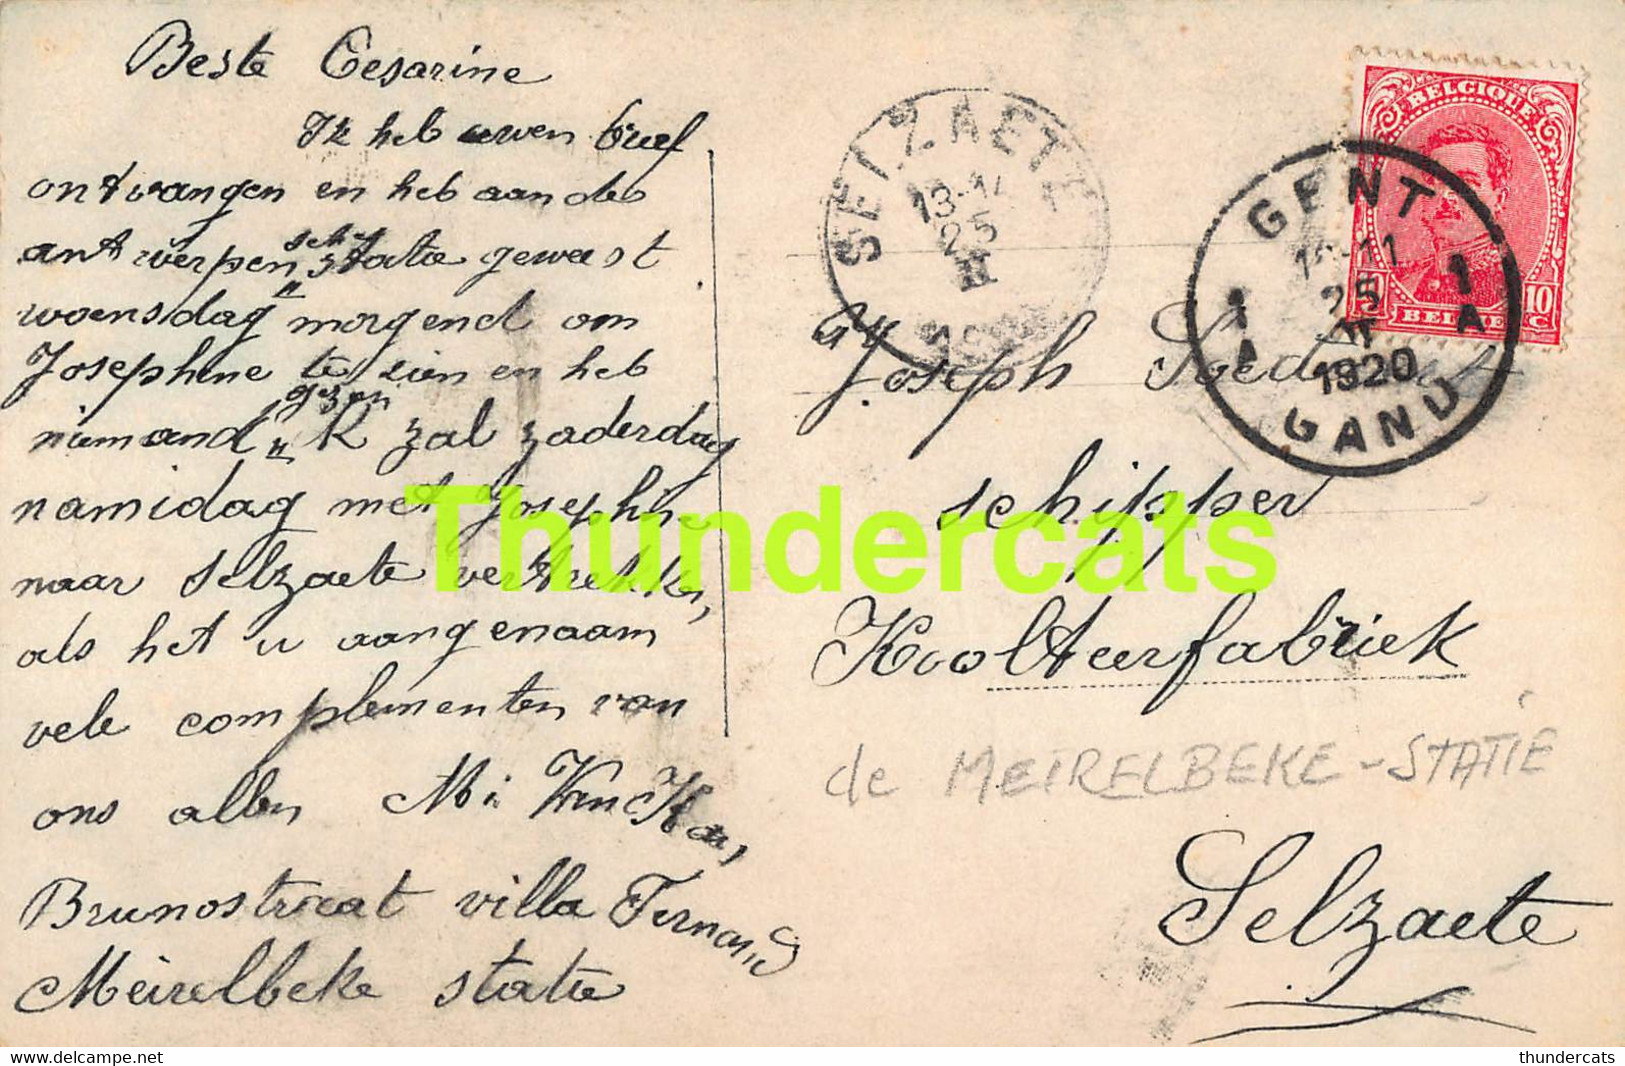 Beste Cesarine
Ik heb uwen brief
ontvangen en heb aan de
antwerpen statie geweest
woensdag morgend om
Josephine te zien en heb
gezen
niemand " k zal zaderdag
namidag met Josephine
naar Selzaete vertrekken,
als het u aangenaam
vele complementen van
ons allen Mi
Brunostraat villa Fernand
Meirelbeke statie
SELZAETE
13-14
25
II
BELGIQUE
10
BELGIE
C
GENT
11
25
II
1920
1 A
1 A
GAND
Joseph
schipper
Koolteerfabriek
de MEIRELBEKE-STATIE
Selzaete
Thundercats
delcampe.net
thundercats